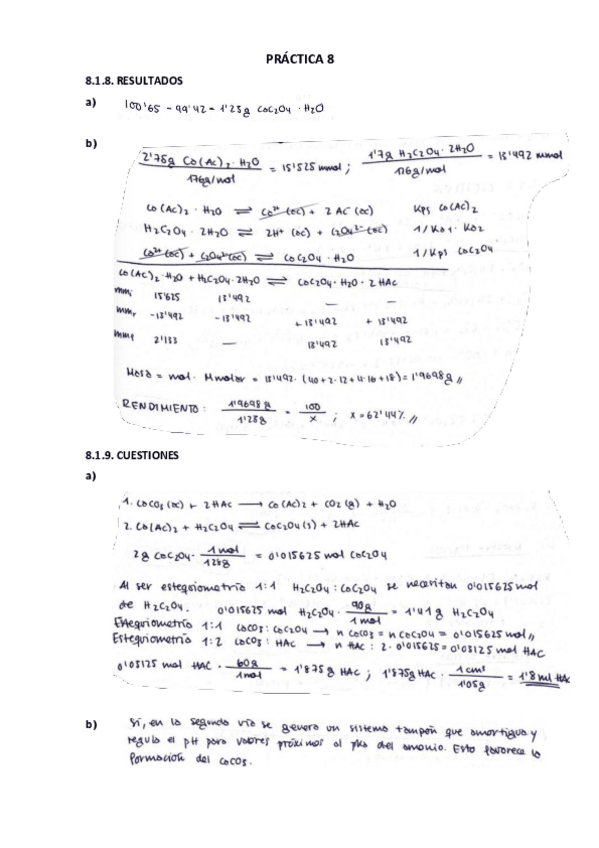 PRÁCTICA 8
8.1.8. RESULTADOS
a) 100'65 - 99'42 = 1'23g CaC2O4 · H2O
b) 2'75g Ca(Ac)2 · H2O / 176g/mol = 15'525 mmol ; 1'7g H2C2O4 · 2H2O / 126g/mol = 13'492 mmol
Ca(Ac)2 · H2O ⇌ Ca2+ (ac) + 2 Ac- (ac) Kps Ca(Ac)2
H2C2O4 · 2H2O ⇌ 2H+ (ac) + C2O4 2- (ac) 1/Ka1 · Ka2
Ca2+ (ac) + C2O4 2- (ac) ⇌ CaC2O4 · H2O 1/Kps CaC2O4
Ca(Ac)2 · H2O + H2C2O4 · 2H2O ⇌ CaC2O4 · H2O · 2 HAc
mmi 15'625 13'492 — —
mmr -13'492 -13'492 +13'492 +13'492
mmf 2'133 — 13'492 13'492
Masa = mol · Mmolar = 13'492 · (40 + 2·12 + 4·16 + 18) = 1'9698g
RENDIMIENTO: 1'9698g / 1'23g = 100 / x ; x = 62'44%
8.1.9. CUESTIONES
a)
1. CaCO3 (ac) + 2 HAc → Ca(Ac)2 + CO2 (g) + H2O
2. Ca(Ac)2 + H2C2O4 ⇌ CaC2O4 (s) + 2HAc
2g CaC2O4 · 1 mol / 128g = 0'015625 mol CaC2O4
Al ser estequiometría 1:1 H2C2O4 : CaC2O4 se necesitan 0'015625 mol
de H2C2O4. 0'015625 mol H2C2O4 · 90g / 1 mol = 1'41g H2C2O4
Estequiometría 1:1 CaCO3 : CaC2O4 → n CaCO3 = n CaC2O4 = 0'015625 mol
Estequiometría 1:2 CaCO3 : HAc → n HAc : 2 · 0'015625 = 0'03125 mol HAC
0'03125 mol HAC · 60g / 1mol = 1'875g HAc ; 1'875g HAC · 1 cm3 / 1'05g = 1'8 ml HAc
b) Sí, en la segunda vía se genera un sistema tampón que amortigua y
regula el pH para valores próximos al pka del amonio. Esto favorece la
formación del CaCO3.